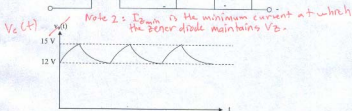 Note 2: Izmin is the minimum current at which
the zener diode maintains Vz.
Vc(t)
v₀(t)
15 V
12 V
t